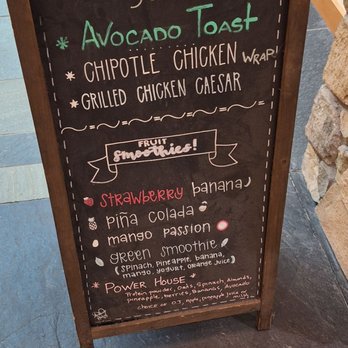 Avocado Toast
* CHIPOTLE CHICKEN WRAP!
* GRILLED CHICKEN CAESAR
FRUIT
Smoothies!
STRAWBERRY banana
piña colada
mango passion
green smoothie
(Spinach, Pineapple, banana,
mango, yogurt, orange juice)
* POWER HOUSE *
Protein powder, Oats, Spinach, Almonds,
pineapple, berries, Bananas, Avocado
choice of O.J, Apple, pineapple juice or